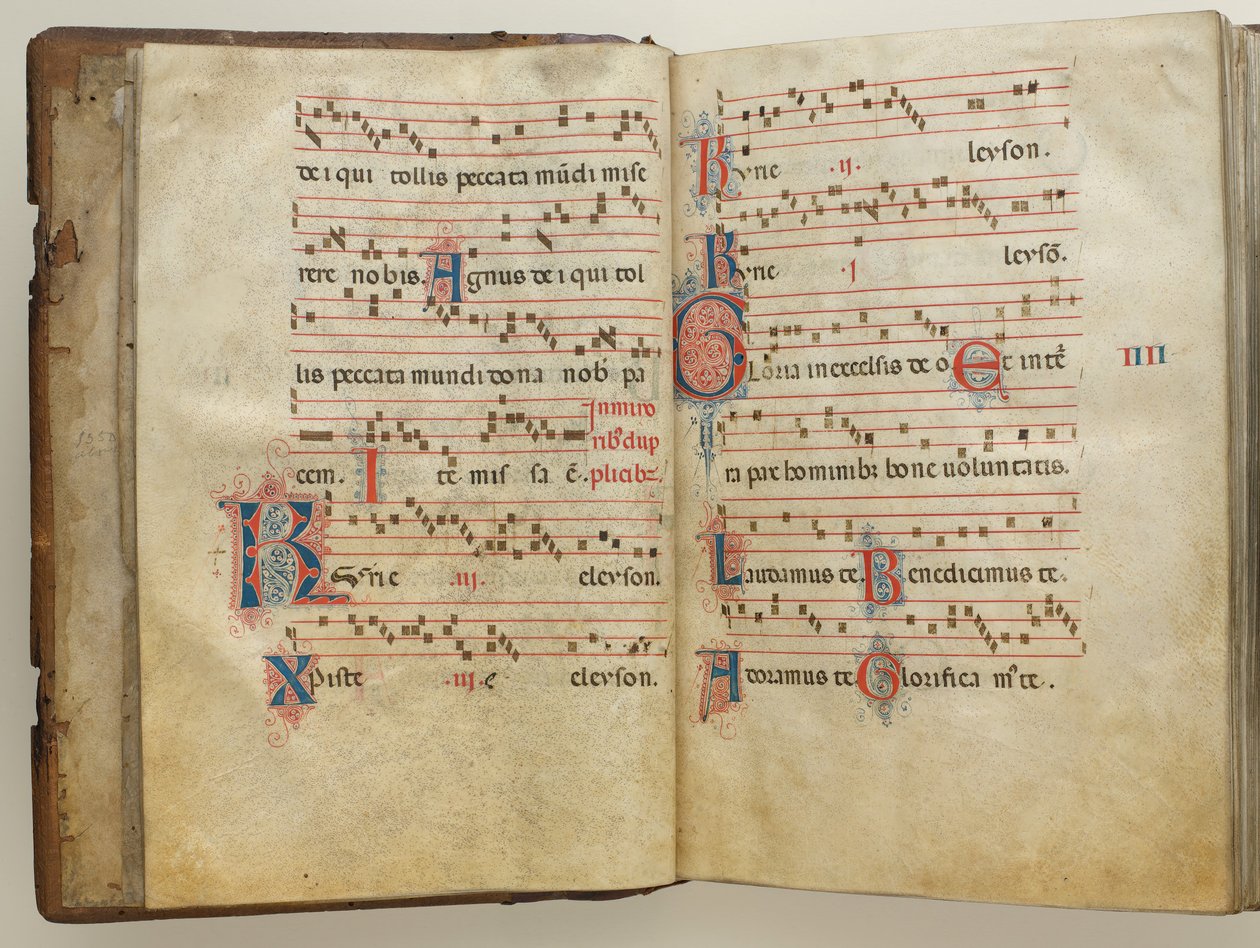 de i qui tollis peccata mūdi mise
rere nobis. Agnus de i qui tol
lis peccata mundi dona nob̾ pa
In mino
rib᾽ dup
cem. I te mis sa ē. plicibꝫ.
Kyrie .iij. eleyson.
Xpiste .iij. e eleyson.
Kyrie .ij. leyson.
Kyrie .i leysō.
Gloria in excelsis de o Et in te᷑
IIII
ra pax hominibꝫ bone uoluntatis.
Laudamus te. Benedicimus te.
Adoramus te. Glorifica m᾽ te.